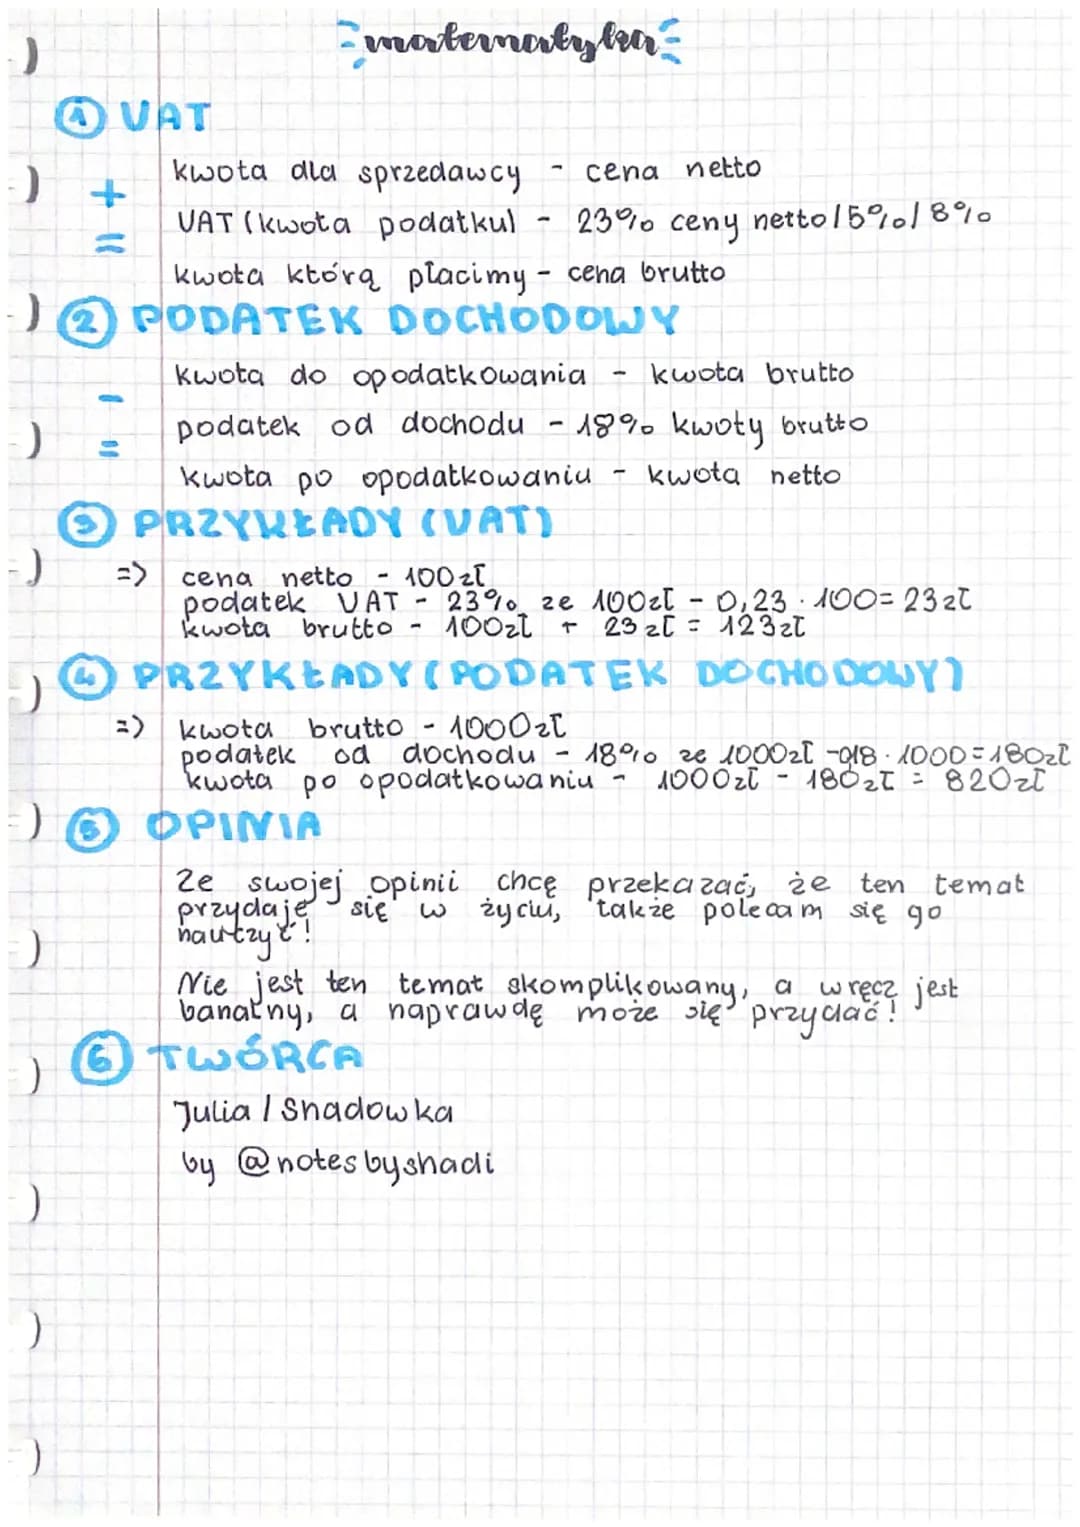 matematyka
① VAT
kwota dla sprzedawcy - cena netto
+
VAT (kwota podatku) - 23% ceny netto / 5% / 8%
=
kwota którą płacimy - cena brutto
② PODATEK DOCHODOWY
kwota do opodatkowania - kwota brutto
-
podatek od dochodu - 18% kwoty brutto
=
kwota po opodatkowaniu - kwota netto
③ PRZYKŁADY (VAT)
=> cena netto - 100zł
podatek VAT - 23% ze 100zł - 0,23 · 100 = 23zł
kwota brutto - 100zł + 23zł = 123zł
④ PRZYKŁADY (PODATEK DOCHODOWY)
=> kwota brutto - 1000zł
podatek od dochodu - 18% ze 1000zł - 0,18 · 1000 = 180zł
kwota po opodatkowaniu - 1000zł - 180zł = 820zł
⑤ OPINIA
Ze swojej opinii chcę przekazać, że ten temat
przydaje się w życiu, także polecam się go
nauczyć!
Nie jest ten temat skomplikowany, a wręcz jest
banalny, a naprawdę może się przydać!
⑥ TWÓRCA
Julia / Shadowka
by @notesbyshadi